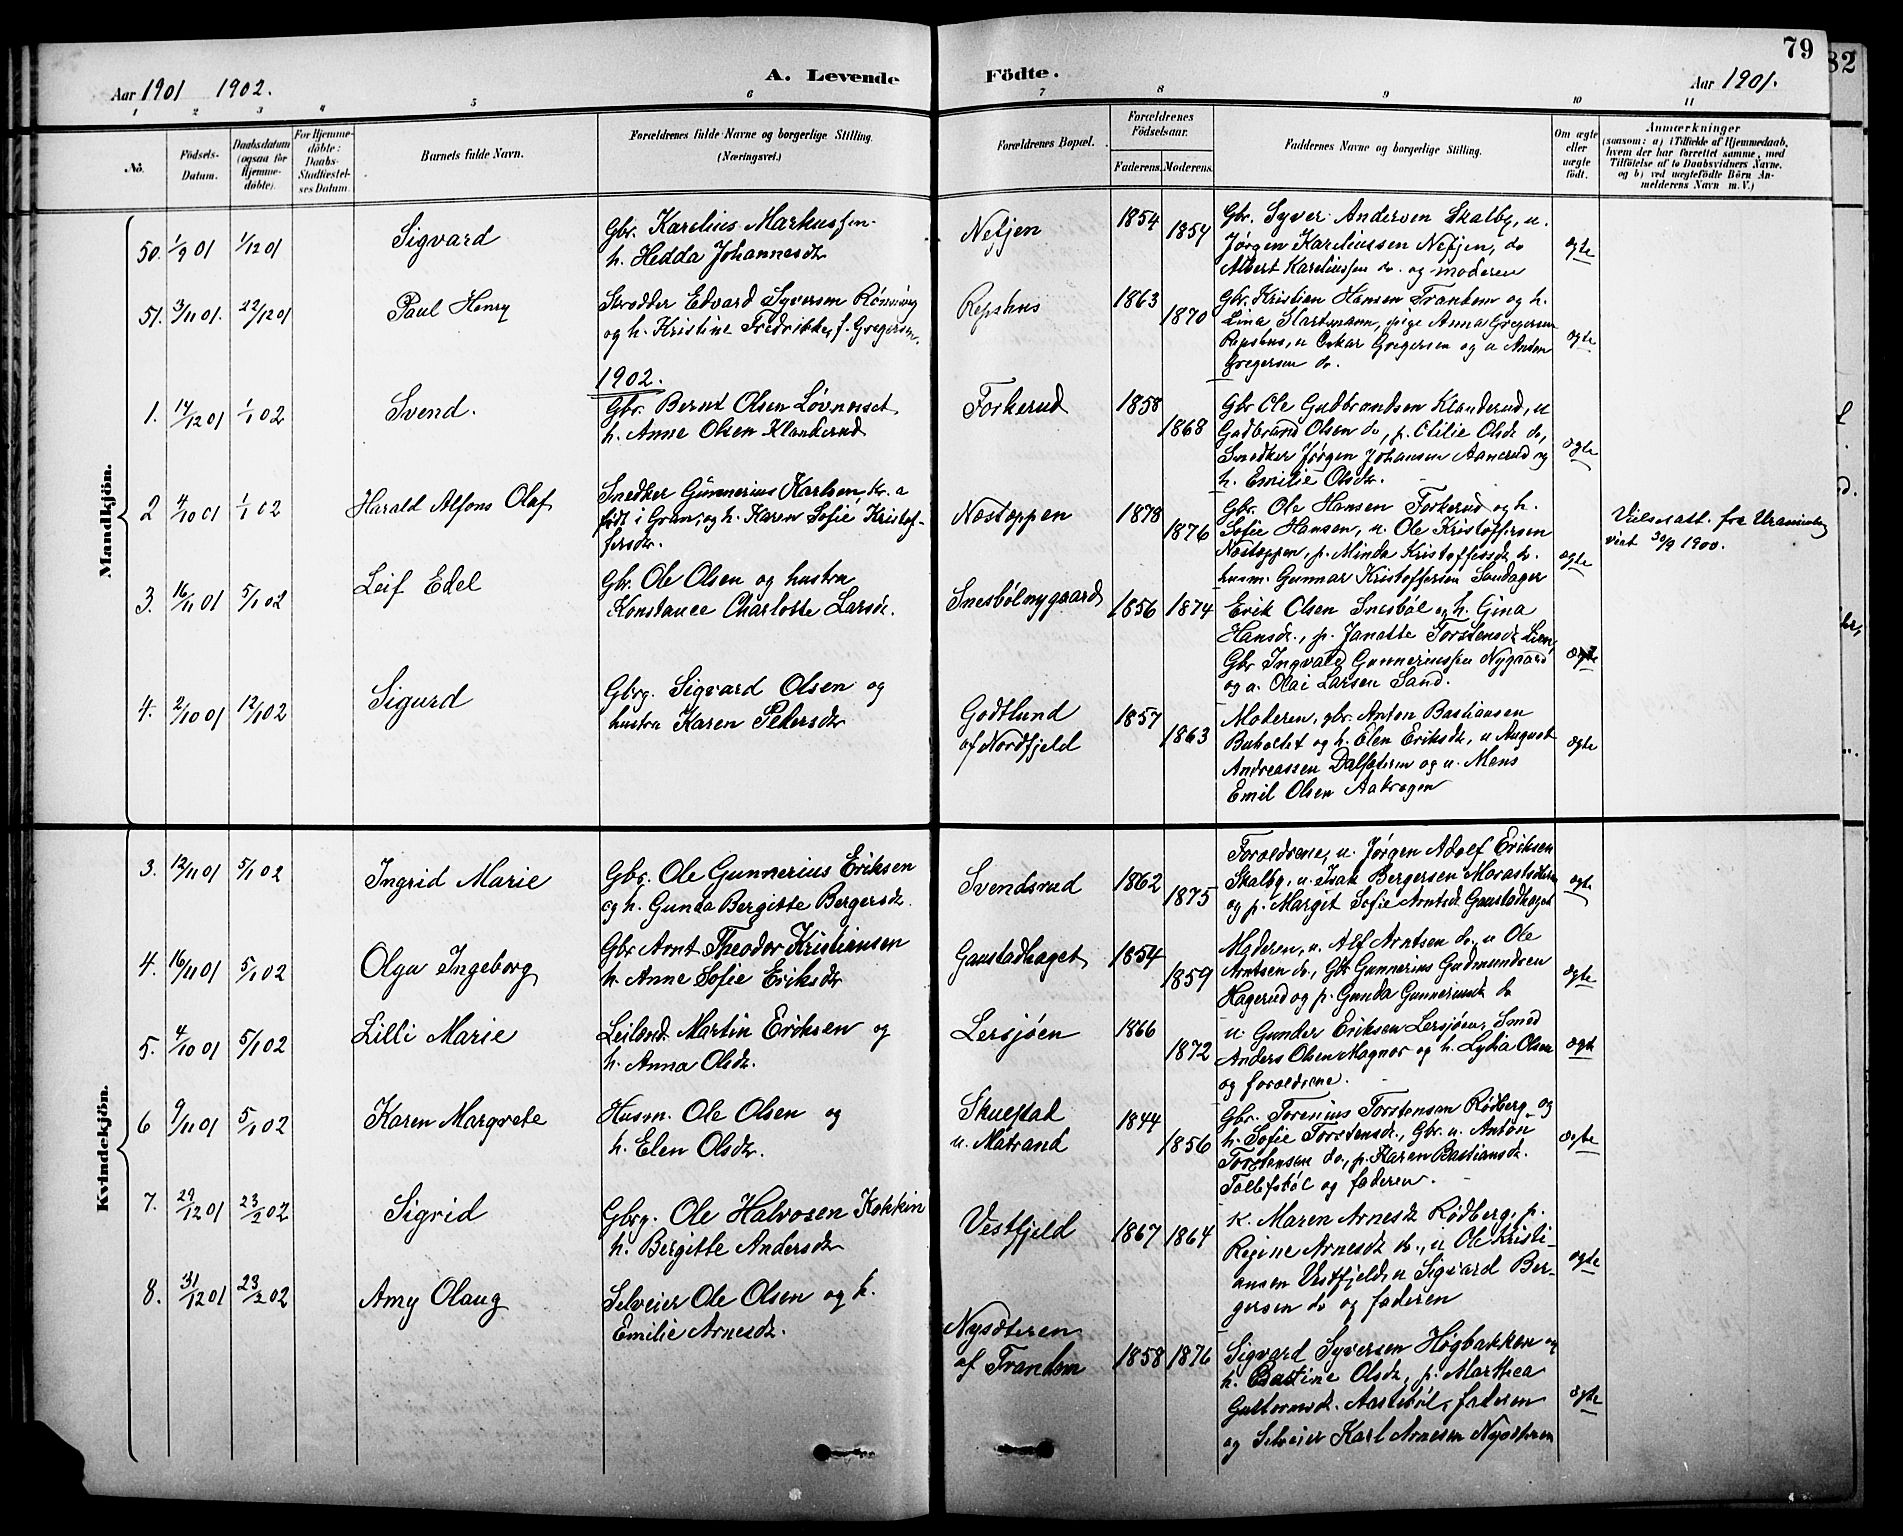 79
82
Aar 1901 1902.
A. Levende Födte.
Aar 1901.
1 2 3 4 5 6 7 8 9 10 11
No.
Födsels-
Datum.
Daabsdatum
(ogsaa för
Hjemme-
döbte).
For Hjemme-
döbte:
Daabs-
Stadfæstel-
ses Datum.
Barnets fulde Navn.
Forældrenes fulde Navne og borgerlige Stilling.
(Næringsvei.)
Forældrenes Bopæl.
Forældrenes
Födselsaar.
Faderens. Moderens.
Faddernes Navne og borgerlige Stilling.
Om ægte
eller
uægte
födt.
Anmærkninger
(saasom: a) i Tilfælde af Hjemmedaab,
hvem der har forrettet samme, med
Tilföielse af to Daabsvidners Navne,
og b) ved uægtefödte Börn An-
melderens Navn m. V.)
Mandkjön.
50. 1/9 01 1/12 01
Sigvard
Gbr. Karelius Markussen
h. Hedda Johannesdr
Nefjen
1854 1854
Gbr. Syver Andersen Skalby, u.
Jørgen Kareliussen Nefjen, do
Albert Kareliussen do. og moderen
ægte
51. 3/11 01. 22/12 01
Paul Henry
Skrædder Edvard Syversen Rönning
og h. Kristine Fredrikke, f. Gregersen.
Repshus
1863 1870
Gbr. Kristian Hansen Trantem og h.
Lina Hartmann, pige Anna Gregersen
Repshus, u Oskar Gregersen og u Anton
Gregersen do.
ægte
1902.
1. 14/12 01 1/1 02
Svend.
Gbr. Bernt Olsen Løvnesset
h. Anne Olsen Klanderud
Forkerud
1858 1868
Gbr Ole Gudbrandsen Klanderud, u
Gudbrand Olsen do, p. Otilie Olsdr do,
Snedker Jørgen Johansen Aanerud og
h. Emilie Olsdr.
ægte
2 4/10 01 1/1 02
Harald Alfons Olaf
Snedker Günnerius Karlsen, Kr. a
født i Gran, og h. Karen Sofie Kristof-
fersdr.
Næstoppen
1878 1876
Gbr. Ole Hansen Forkerud og h.
Sofie Hansen, u. Ole Kristoffersen
Næstoppen, p. Minda Kristoffersdr do.
husm. Gunnar Kristoffersen Sandager
ægte
Vielsesatt. fra Uranienborg
vist 30/9 1900.
3. 16/11 01 5/1 02
Leif Edel
Gbr. Ole Olsen og hustru
Konstance Charlotte Larsdr.
Snesbölnygaard
1856 1874
Erik Olsen Snesböl og h. Gina
Hansdr., p. Janette Torstensdr Lien,
Gbr Ingvald Gunneriussen Nygaard
og u. Olai Larsen Sand.
ægte
4. 2/10 01 12/1 02
Sigurd
Gbrg. Sigvard Olsen og
hustru Karen Petersdr
Godtlund
af Nordfjeld
1857 1863
Moderen, gbr. Anton Bastiansen
Buholtet og h. Elen Eriksdr, u August
Andreassen Dalsæteren og u. Mons
Emil Olsen Aakrogen
ægte
Kvindekjön.
3. 12/11 01 5/1 02
Ingrid Marie
Gbr. Ole Gunnerius Eriksen
og h. Gunda Bergitte Bergersdr.
Svendsrud
1862 1875
Forældrene, u. Jørgen Adolf Eriksen
Skalby, u. Isak Bergersen Morastsæteren
og p. Margit Sofie Arntsdr Gaustadhaget
ægte
4. 16/11 01 5/1 02
Olga Ingeborg
Gbr Arnt Theodor Kristiansen
h. Anne Sofie Eriksdr
Gaustadhaget
1854 1859
Moderen, u. Alf Arntsen do, u Ole
Arntsen do, Gbr Gunnerius Gudmundsen
Hagerud og p. Gunda Gunneriusdr do
ægte
5. 4/10 01 5/1 02
Lilli Marie
Leilend. Martin Eriksen og
h. Anna Olsdr.
Lersjøen
1866 1872
u. Gunder Eriksen Lersjøen, Smed
Anders Olsen Magnor og h. Lydia Olsen
og forældrene.
ægte
6 9/11 01 5/1 02
Karen Margrete
Husm. Ole Olsen og
h. Elen Olsdr.
Skuestad
u. Matrand
1844 1856
Gbr. Torenius Torstensen Rødberg og
h. Sofie Torstensdr., Gbr. u. Anton
Torstensen do., p. Karen Bastiansdr.
Tollefsböl og faderen.
ægte
7. 29/12 01 23/2 02
Sigrid
Gbrg. Ole Halvorsen Kokkin
h. Bergitte Andersdr
Vestfjeld
1867 1864
K. Maren Arnesdr Rødberg, p.
Regine Arnesdr do., u Ole Kristi-
ansen Vestfjeld, u Sigvard Ber-
gersen do og faderen
ægte
8. 31/12 01 23/2 02
Amy Olaug
Selveier Ole Olsen og h.
Emilie Arnesdr.
Nysæteren
af Trandem
1858 1876
Sigvard Syversen Høgbakken og
h. Bastine Olsdr, p. Marthea
Guttormsdr. Aastebøl, faderen
og Selveier Karl Arnesen Nysæteren
ægte